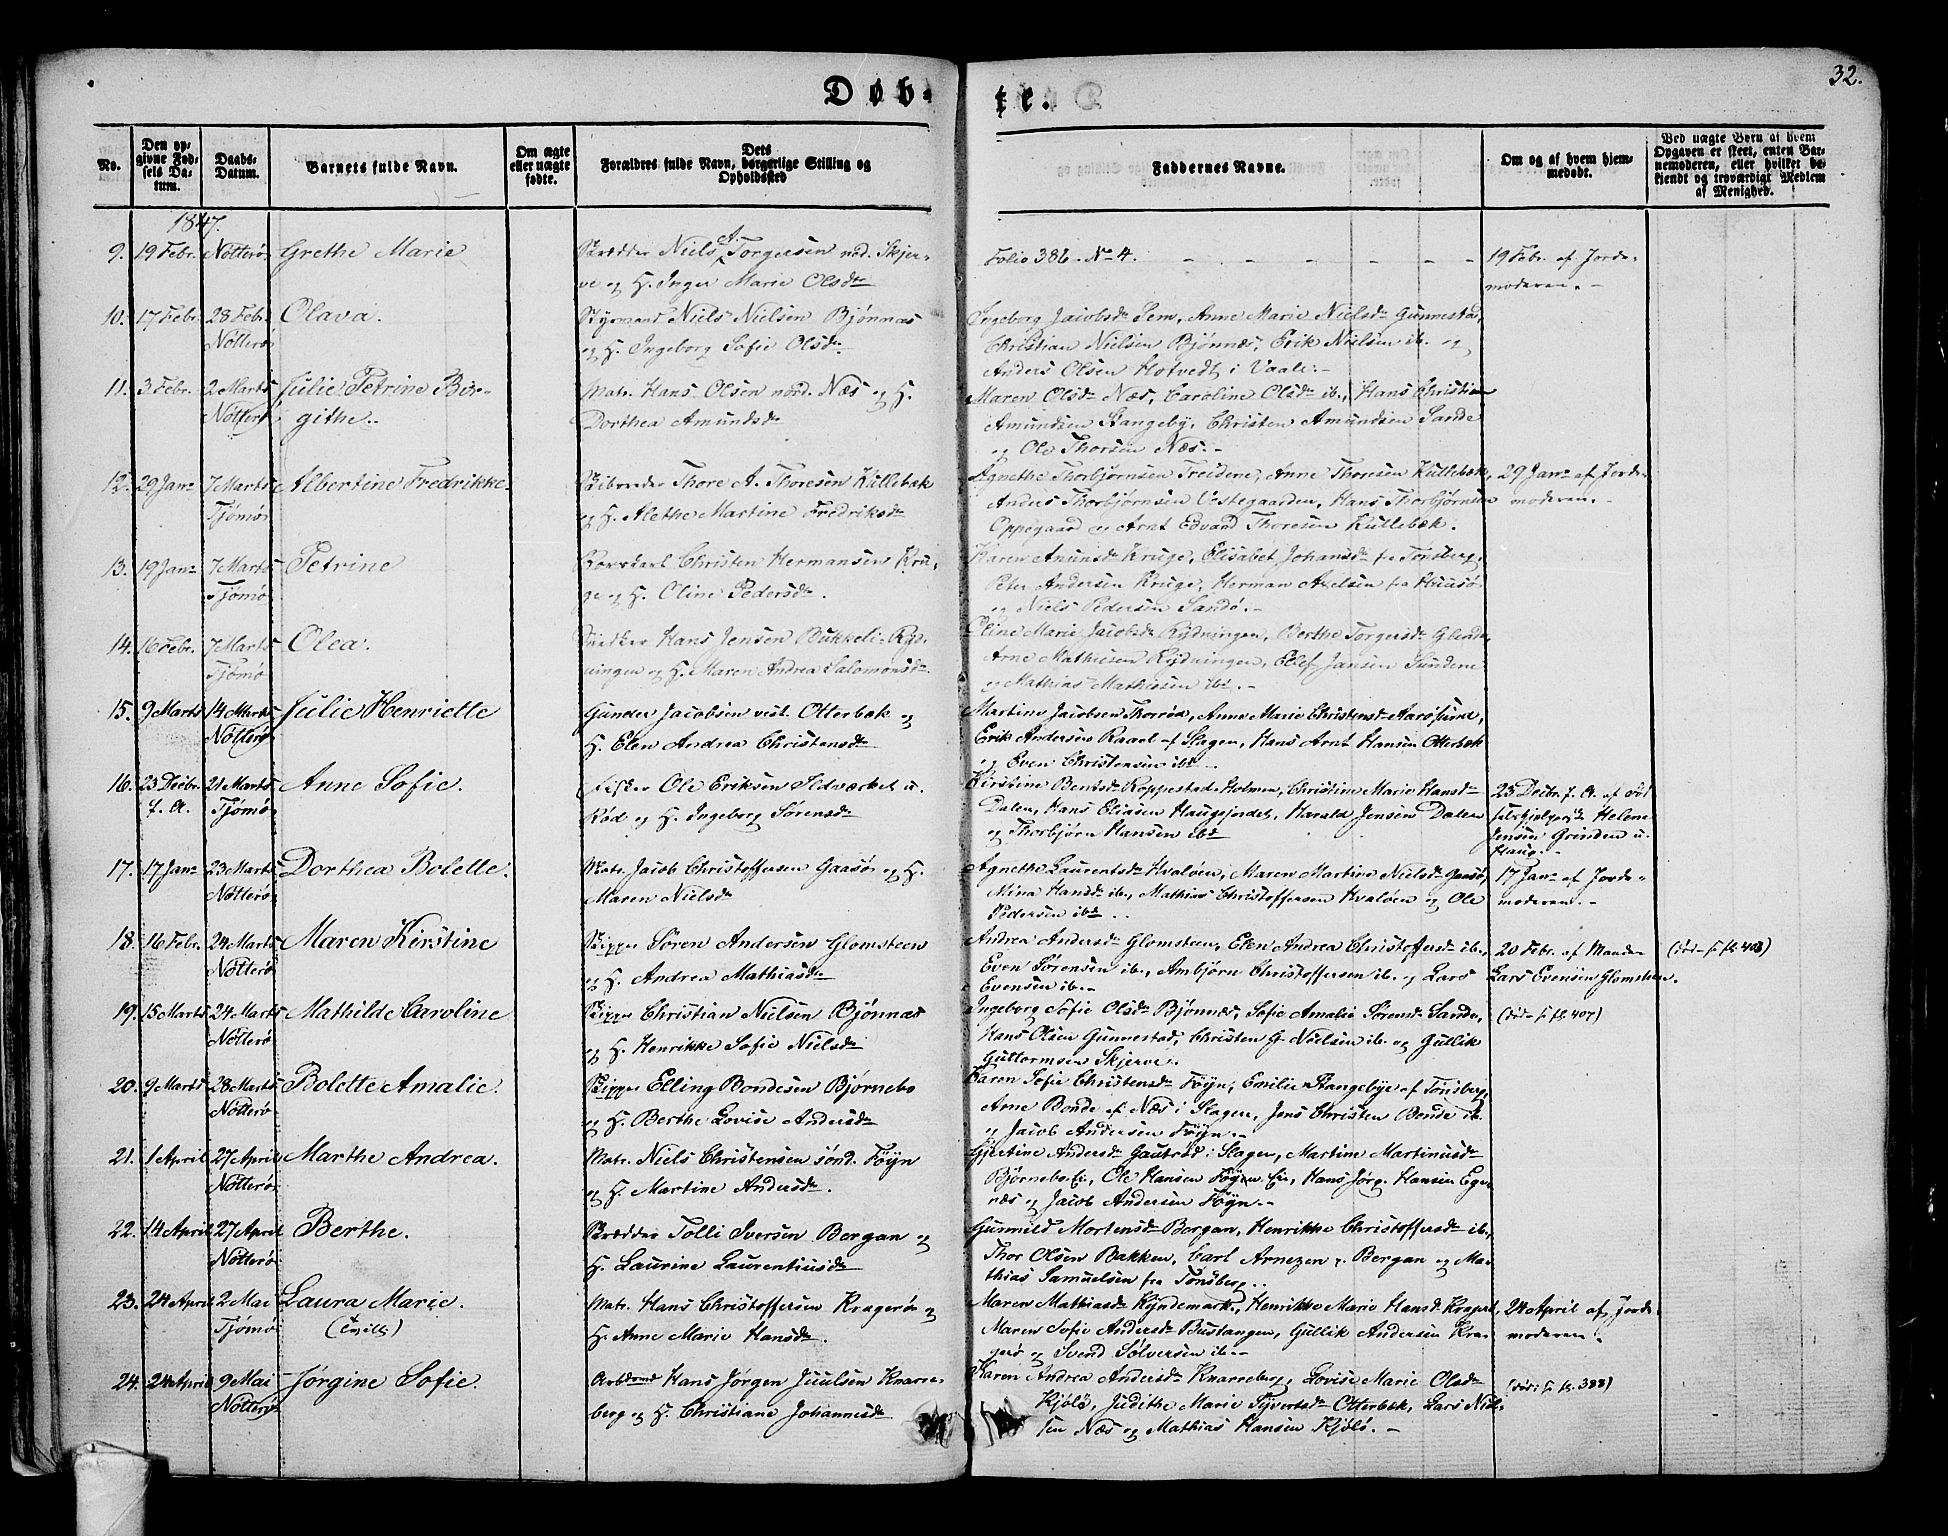 Døb-
te.
32.
No.
Den op-
givne Fød-
sels Da-
tum.
Daabs-
Datum.
Barnets fulde Navn.
Om ægte
eller uægte
fødte.
Dets
Forældres fulde Navn, borgerlige Stilling og
Opholdssted
Faddernes Navne.
Om og af hvem hjem-
medøbt.
Ved uægte Børn af hvem
Opgaven er skeet, enten Bar-
nemoderen, eller hvilket be-
kjendt og troværdigt Medlem
af Menighed.
1847.
9. 19 Febr. Nötterö Grethe Marie
Skrædder Niels A. Torgersen nord. Skjer-
ve og H. Inger Marie Olsdr
Folio 386. No 4. - - - - - -
19 Febr. af Jorde-
moderen. -
10. 17 Febr. 28 Febr. Olava.
Nötterö
Styrmand Niels Nielsen Bjönnæs
og H. Ingeborg Sofie Olsdr
Ingeborg Jacobsdr Sem, Anne Marie Nielsdr Gunnestad,
Christian Nielsen Bjönnæs, Erik Nielsen ib. og
Anders Olsen Hotvedt i Vaale. -
11. 3 Febr. 2 Marts Julie Petrine Bir-
Nötterö githe.
Matr. Hans Olsen nord. Næs og H.
Dorthea Amundsdr
Maren Olsdr Næs, Caroline Olsdr ib., Hans Christian
Amundsen Stangeby, Christen Amundsen Sande
og Ole Thorsen Næs. -
12. 29 Janr 7 Marts Albertine Fredrikke.
Tjömö
Thore A. Thoresen Kullebæk
og H. Alethe Martine Fredriksdr
Agnethe Thorbjörnsen Treidene, Anne Thoresen Kullebæk,
Anders Thorbjörnsen Vestegaarden, Hans Thorbjörnsen
Oppegaard og Arnt Edvard Thoresen Kullebæk.
29 Janr af Jorde-
moderen. -
13. 19 Janr 7 Marts Petrine
Tjömö
Christen Hermansen Kru-
ge og H. Oline Pedersdr.
Karen Amundsdr Kruge, Elisabet Johansdr fra Tönsberg,
Peter Andersen Kruge, Herman Axelsen fra Huusö
og Niels Pedersen Sandö. -
14. 16 Febr. 7 Marts Olea.
Tjömö
Snedker Hans Jensen Bukkeli-Ryd-
ningen og H. Maren Andrea Salomonsdr
Oline Marie Jacobsdr Rydningen, Berthe Torgersdr
Arne Mathiesen Rydningen, Ellef Jansen Sundene
og Mathias Mathiesen ibd. -
15. 9 Marts 14 Marts Julie Henriette
Nötterö
Gunder Jacobsen vest. Otterbæk og
H. Elen Andrea Christensdr
Martine Jacobsen Thorröd, Anne Marie Christensdr Aarösund,
Erik Andersen Raael af Slagen, Hans Arnt Hansen Otterbæk
og Even Christensen ibd. -
16. 23 Decbr. 21 Marts Anne Sofie.
f. A. Tjömö
Fisker Ole Eriksen Sildværket u.
Röd og H. Ingeborg Sörensdr
Kirstine Bentsdr Koppestad-Holmen, Christine Marie Hansdr
Dalen, Hans Eliasen Haugefjordet, Harald Jensen Dalen
og Thorbjörn Hansen ibd
23 Decbr. f. A. af
Helene
Jensen Grinden u.
Haug. -
17. 17 Janr 23 Marts Dorthea Bolette.
Nötterö
Matr. Jacob Christoffersen Gaasö og H.
Maren Nielsdr
Agnethe Laurentsdr Hvalöen, Maren Martine Nielsdr Gaasö,
Mina Hansdr ib., Mathias Christoffersen Hvalöen og Ole
Pedersen ibd. -
17 Janr af Jorde-
moderen. -
18. 16 Febr. 24 Marts Maren Kirstine
Nötterö
Skipper Sören Andersen Glomsteen
og H. Andrea Mathiasdr
Andrea Andersdr Glomsteen, Elen Andrea Christoffersdr ib.,
Even Sörensen ib., Ambjörn Christoffersen ib. og Lars
Evensen ib. -
20 Febr. af Mand-
Lars Evensen Glomsteen.
19. 15 Marts 24 Marts Mathilde Caroline
Nötterö
Skipper Christian Nielsen Bjönnæs
og H. Henrikke Sofie Nielsdr
Ingeborg Sofie Olsdr Bjönnæs, Sofie Amalie Sörensdr Sande,
Hans Olsen Gunnestad, Christen G. Nielsen ib. og Gullik
Guttormsen Skjerve.
20. 9 Marts 28 Marts Bolette Amalie.
Nötterö
Skipper Elling Bondesen Björnebo
og H. Berthe Lovise Andersdr
Karen Sofie Christensdr Föyn, Emilie Stangebye af Tönsberg,
Arne Bonde af Næs i Slagen, Jens Christen Bonde ib.
og Jacob Andersen Föyn. -
21. 1 April 27 April Marthe Andrea.
Nötterö
Matr. Niels Christensen sönd. Föyn
og H. Martine Andersdr.
Andersdr Gauteröd i Slagen, Martine Martinusdr
Björnebo, Ole Hansen Föyn, Hans Jörg. Hansen Ege-
næs og Jacob Andersen Föyn. -
22. 14 April 27 April Berthe.
Nötterö
Skrædder Tolli Iversen Bergan og
H. Laurine Laurentiusdr
Gunnild Mortensdr Bergan, Henrikke Christoffersdr ib.,
Thor Olsen Bakken, Carl Arnezen Bergan og Ma-
thias Samuelsen fra Tönsberg.
23. 24 April 2 Mai Laura Marie.
Tjömö (Tvill)
Matr. Hans Christoffersen Kragerö og
H. Anne Marie Hansdr.
Maren Mathiasdr Kyndemark, Henrikke Marie Hansdr Kragerö,
Maren Sofie Andersdr Bustangen, Gullik Andersen Kra-
gerö og Svend Sölversen ib. -
24 April af Jorde-
moderen.
24. 24 April 9 Mai Jörgine Sofie.
Nötterö
Arbdmd Hans Jörgen Juulsen Knarre-
berg og H. Christiane Johannesdr
Karen Andrea Andersdr Knarreberg, Lovise Marie Olsdr
Kjölö, Judithe Marie Syvertsdr Otterbæk, Lars Niel-
sen Næs og Mathias Hansen Kjölö. -